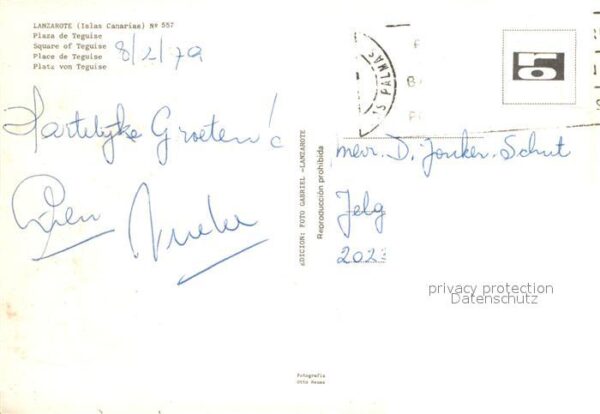 LANZAROTE (Islas Canarias) Nº 557
Plaza de Teguise
Square of Teguise
Place de Teguise
Platz von Teguise
8/2/79
Hartelijke Groeten!
EDICION: FOTO GABRIEL -LANZAROTE
Reproducción prohibida
Fotografía
Otto Reuss
S PALMAS
mevr. D. Jonker-Schut
Jelg
2023
privacy protection
Datenschutz